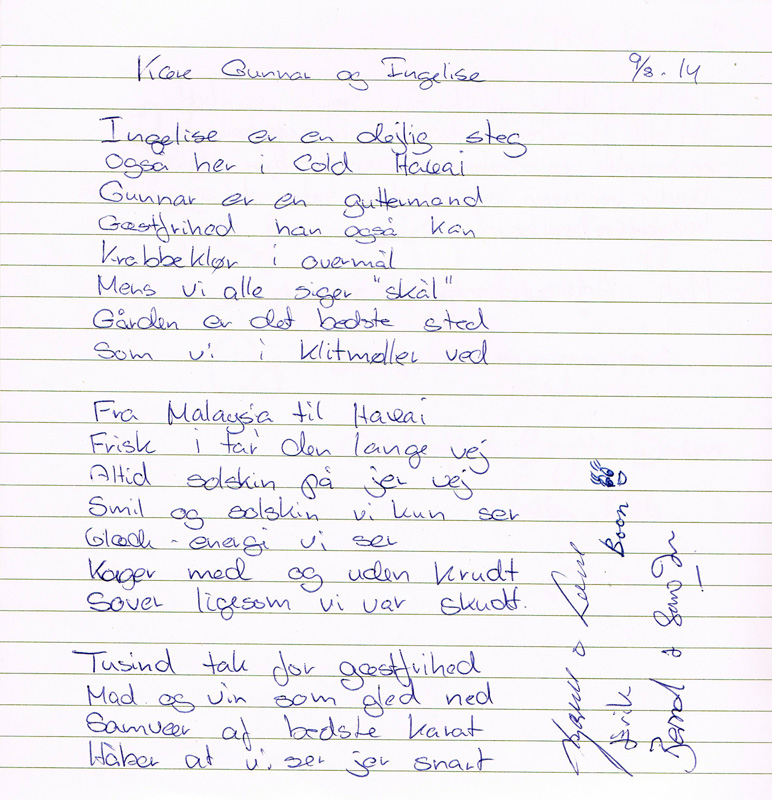 Kære Gunnar og Ingelise 9/8-14
Ingelise er en dejlig steg
Også her i Cold Hawai
Gunnar er en guttermand
Gæstfrihed han også kan
Krabbeklør i overmål
Mens vi alle siger "skål"
Gården er det bedste sted
Som vi i Klitmøller ved
Fra Malaysia til Hawai
Frisk i tar den lange vej
Altid solskin på jer vej
Smil og solskin vi kun ser
Glæde-energi vi ser
Kager med og uden krudt
Sover ligesom vi var skudt.
Tusind tak for gæstfrihed
Mad og vin som gled ned
Samvær af bedste karat
Håber at vi ser jer snart
Erik Boon